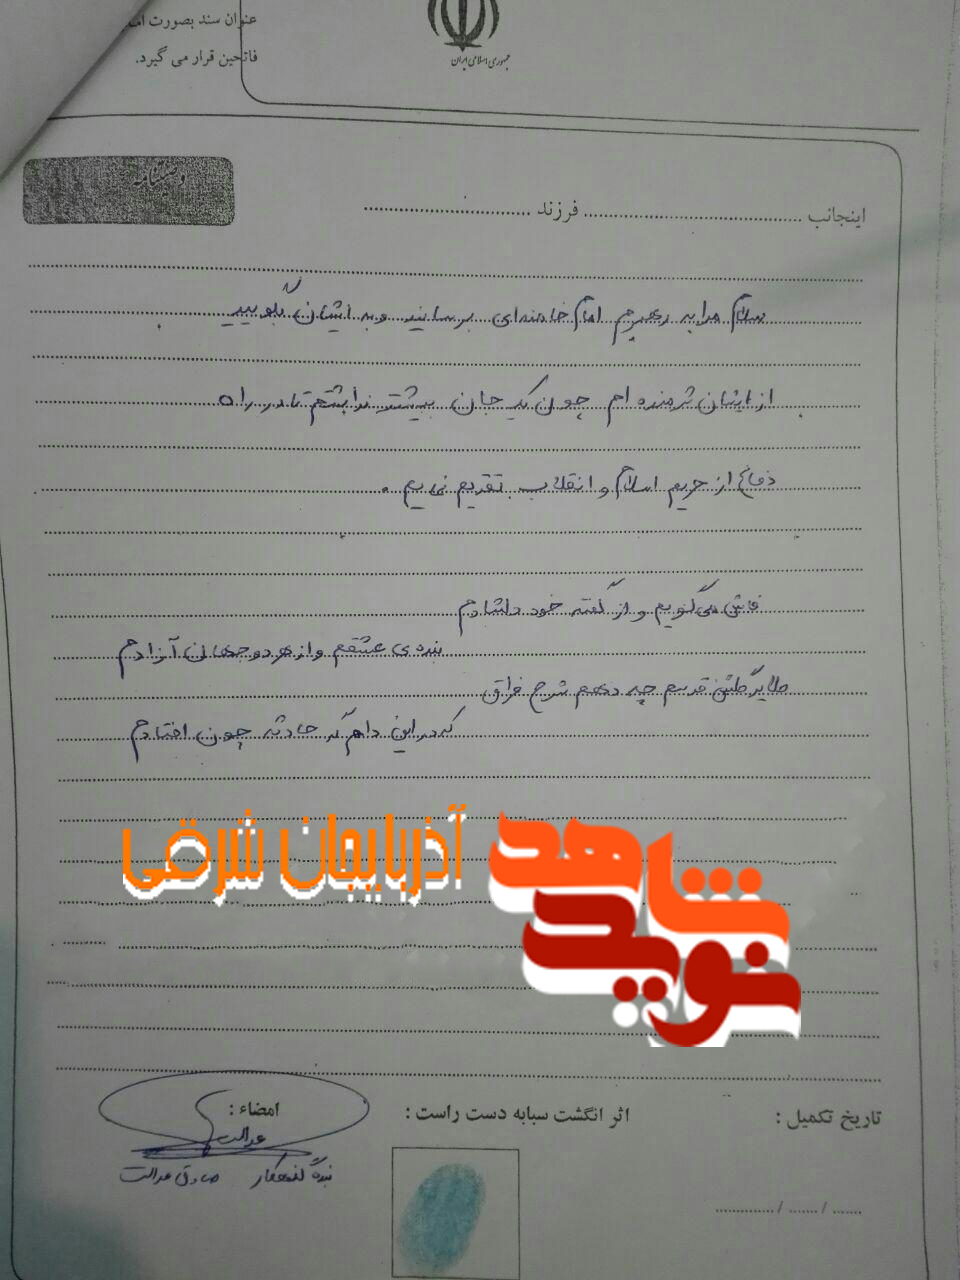 عنوان سند بصورت
فاتحین قرار می گیرد.
جمهوری اسلامی ایران
وصیتنامه
اینجانب ........................................ فرزند ..............................
سلام مرا به رهبرم امام خامنه‌ای برسانید و به ایشان بگویید
از ایشان شرمنده ام چون یک جان بیشتر نداشتم تا در راه
دفاع از حریم اسلام و انقلاب تقدیم نمایم .
فاش می گویم و از گفته خود دلشادم
بنده ی عشقم و از هر دو جهان آزادم
طایر گلشن قدسم چه دهم شرح فراق
که در این دامگه حادثه چون افتادم
شاهد
آذربایجان شرقی
نوید
تاریخ تکمیل :
اثر انگشت سبابه دست راست :
امضاء :
عدالت
بنده گنهکار صادق عدالت
...... / ...... / ............